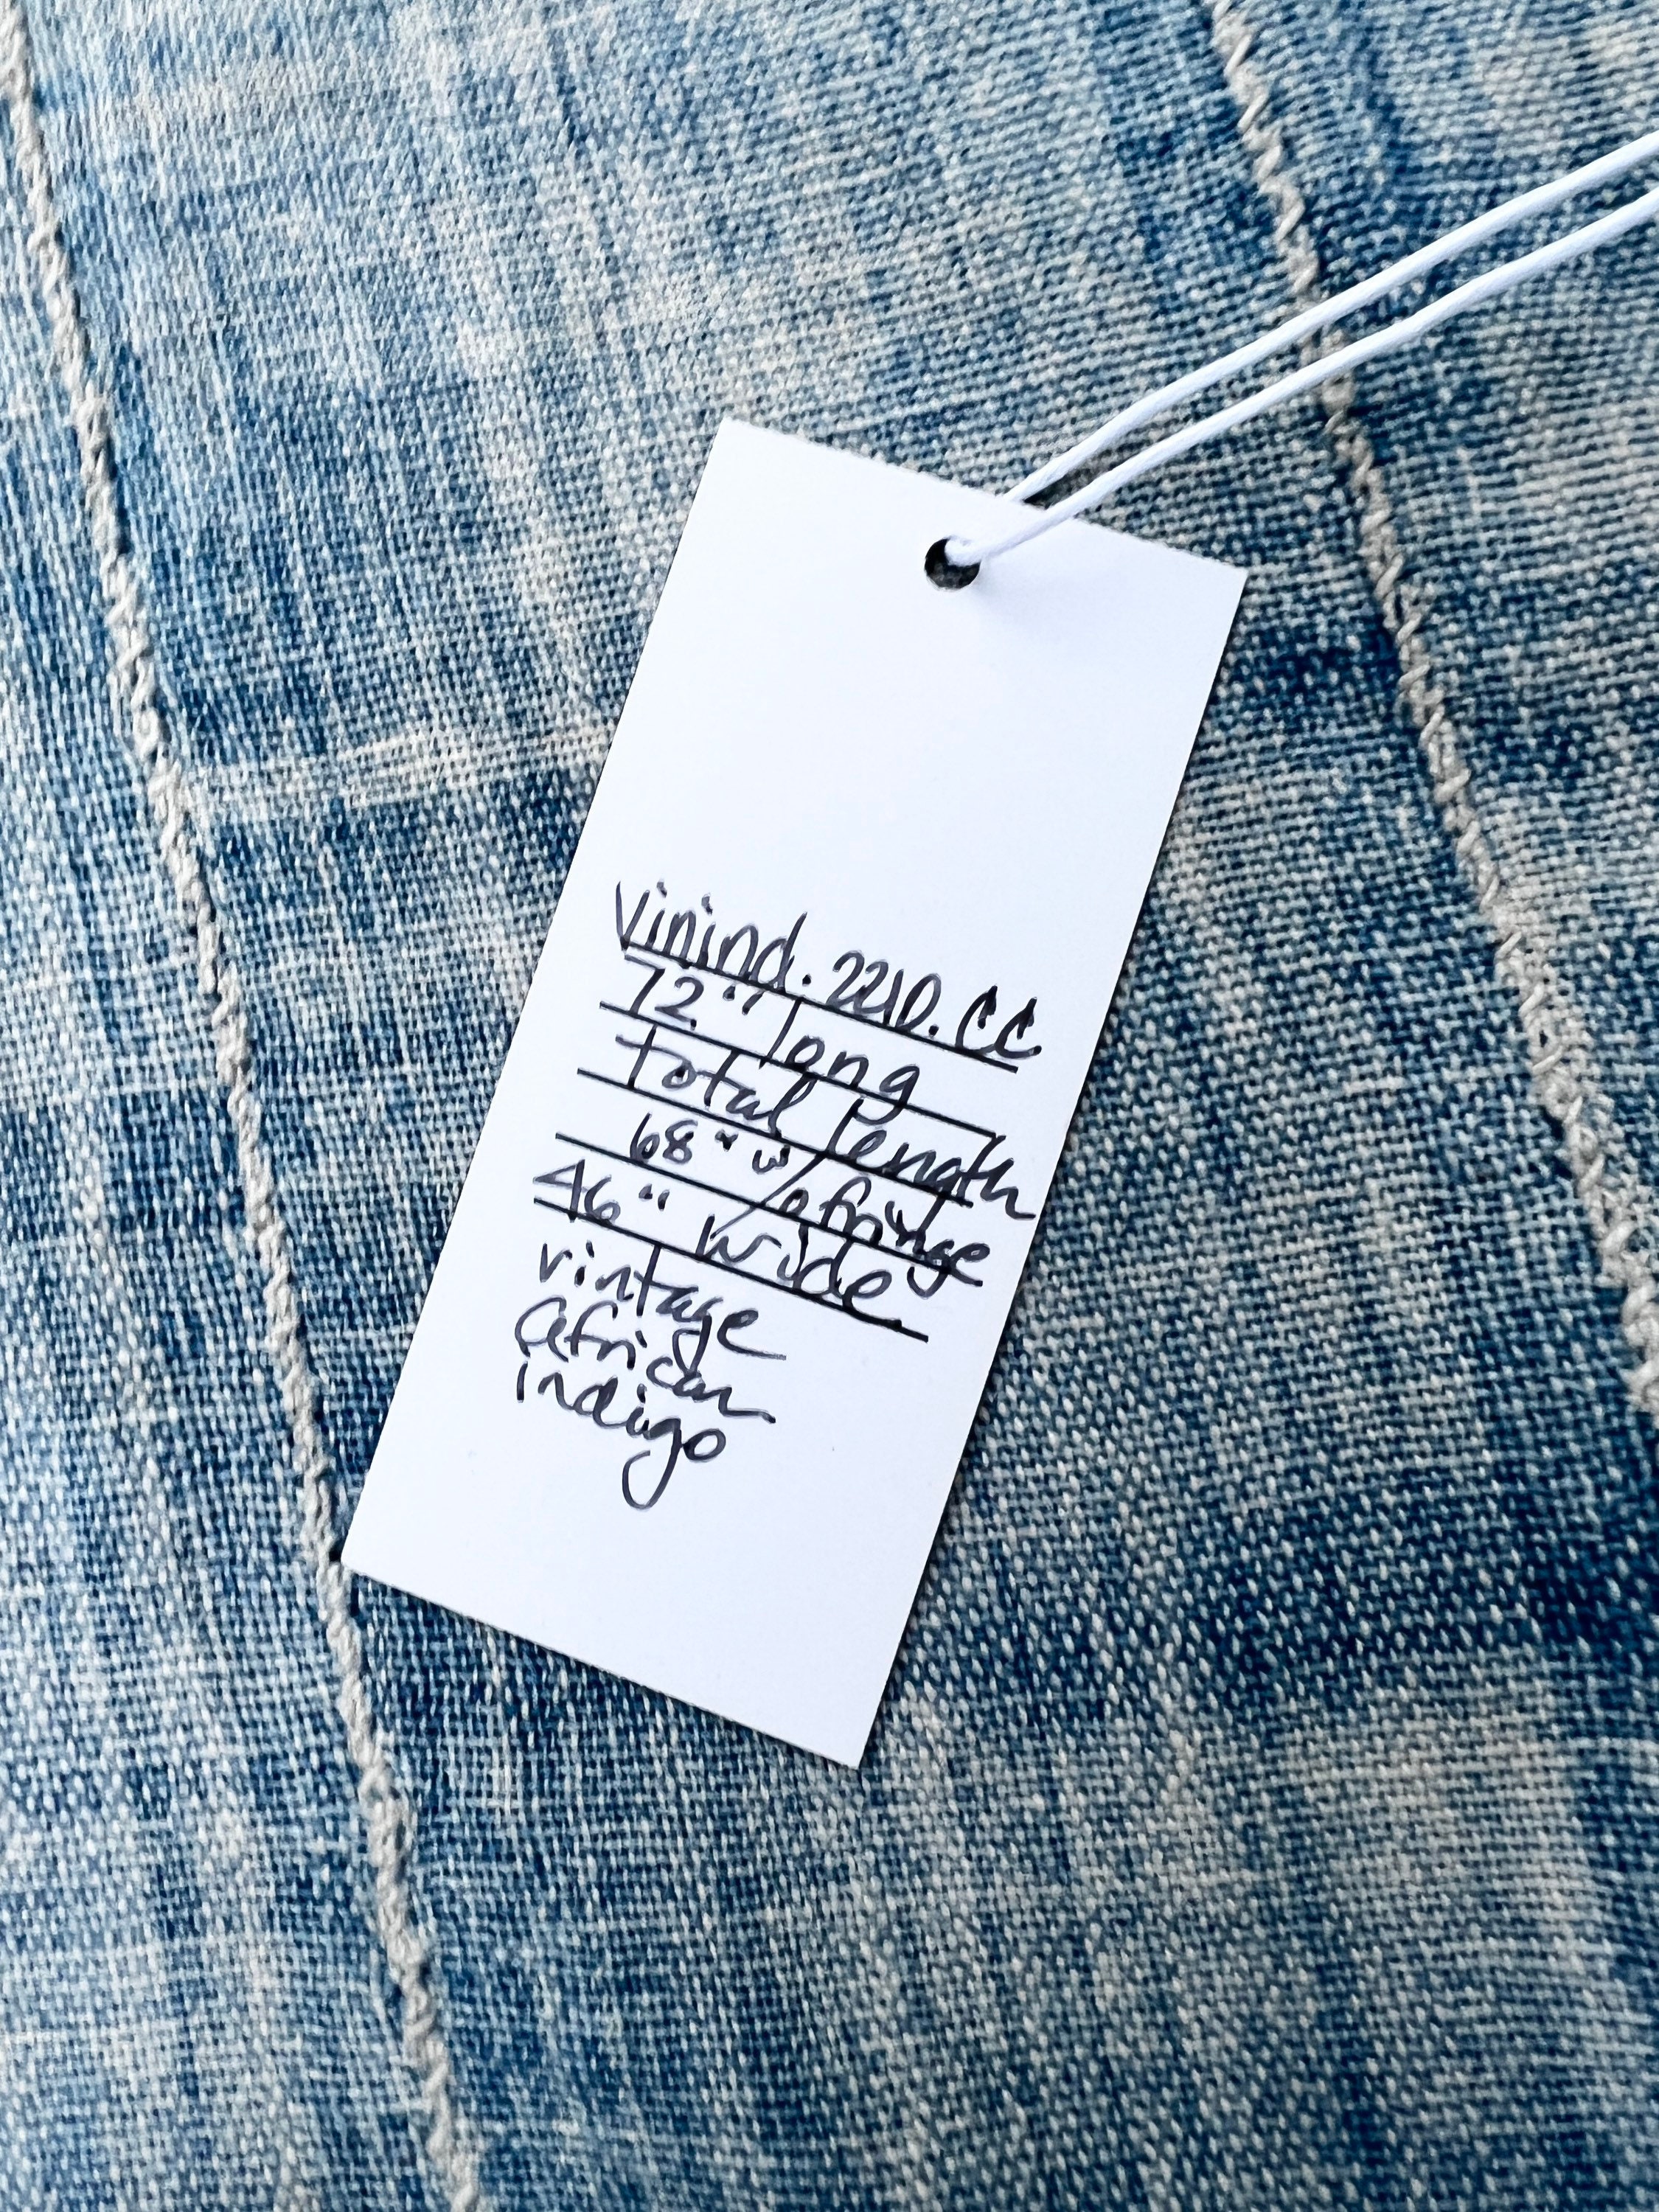 Vinind. 2210. CC
72" long
total length
68" w/o fringe
46" wide
vintage
African
indigo